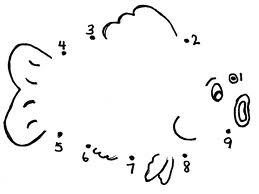 3
2
4
1
5
6
7
8
9